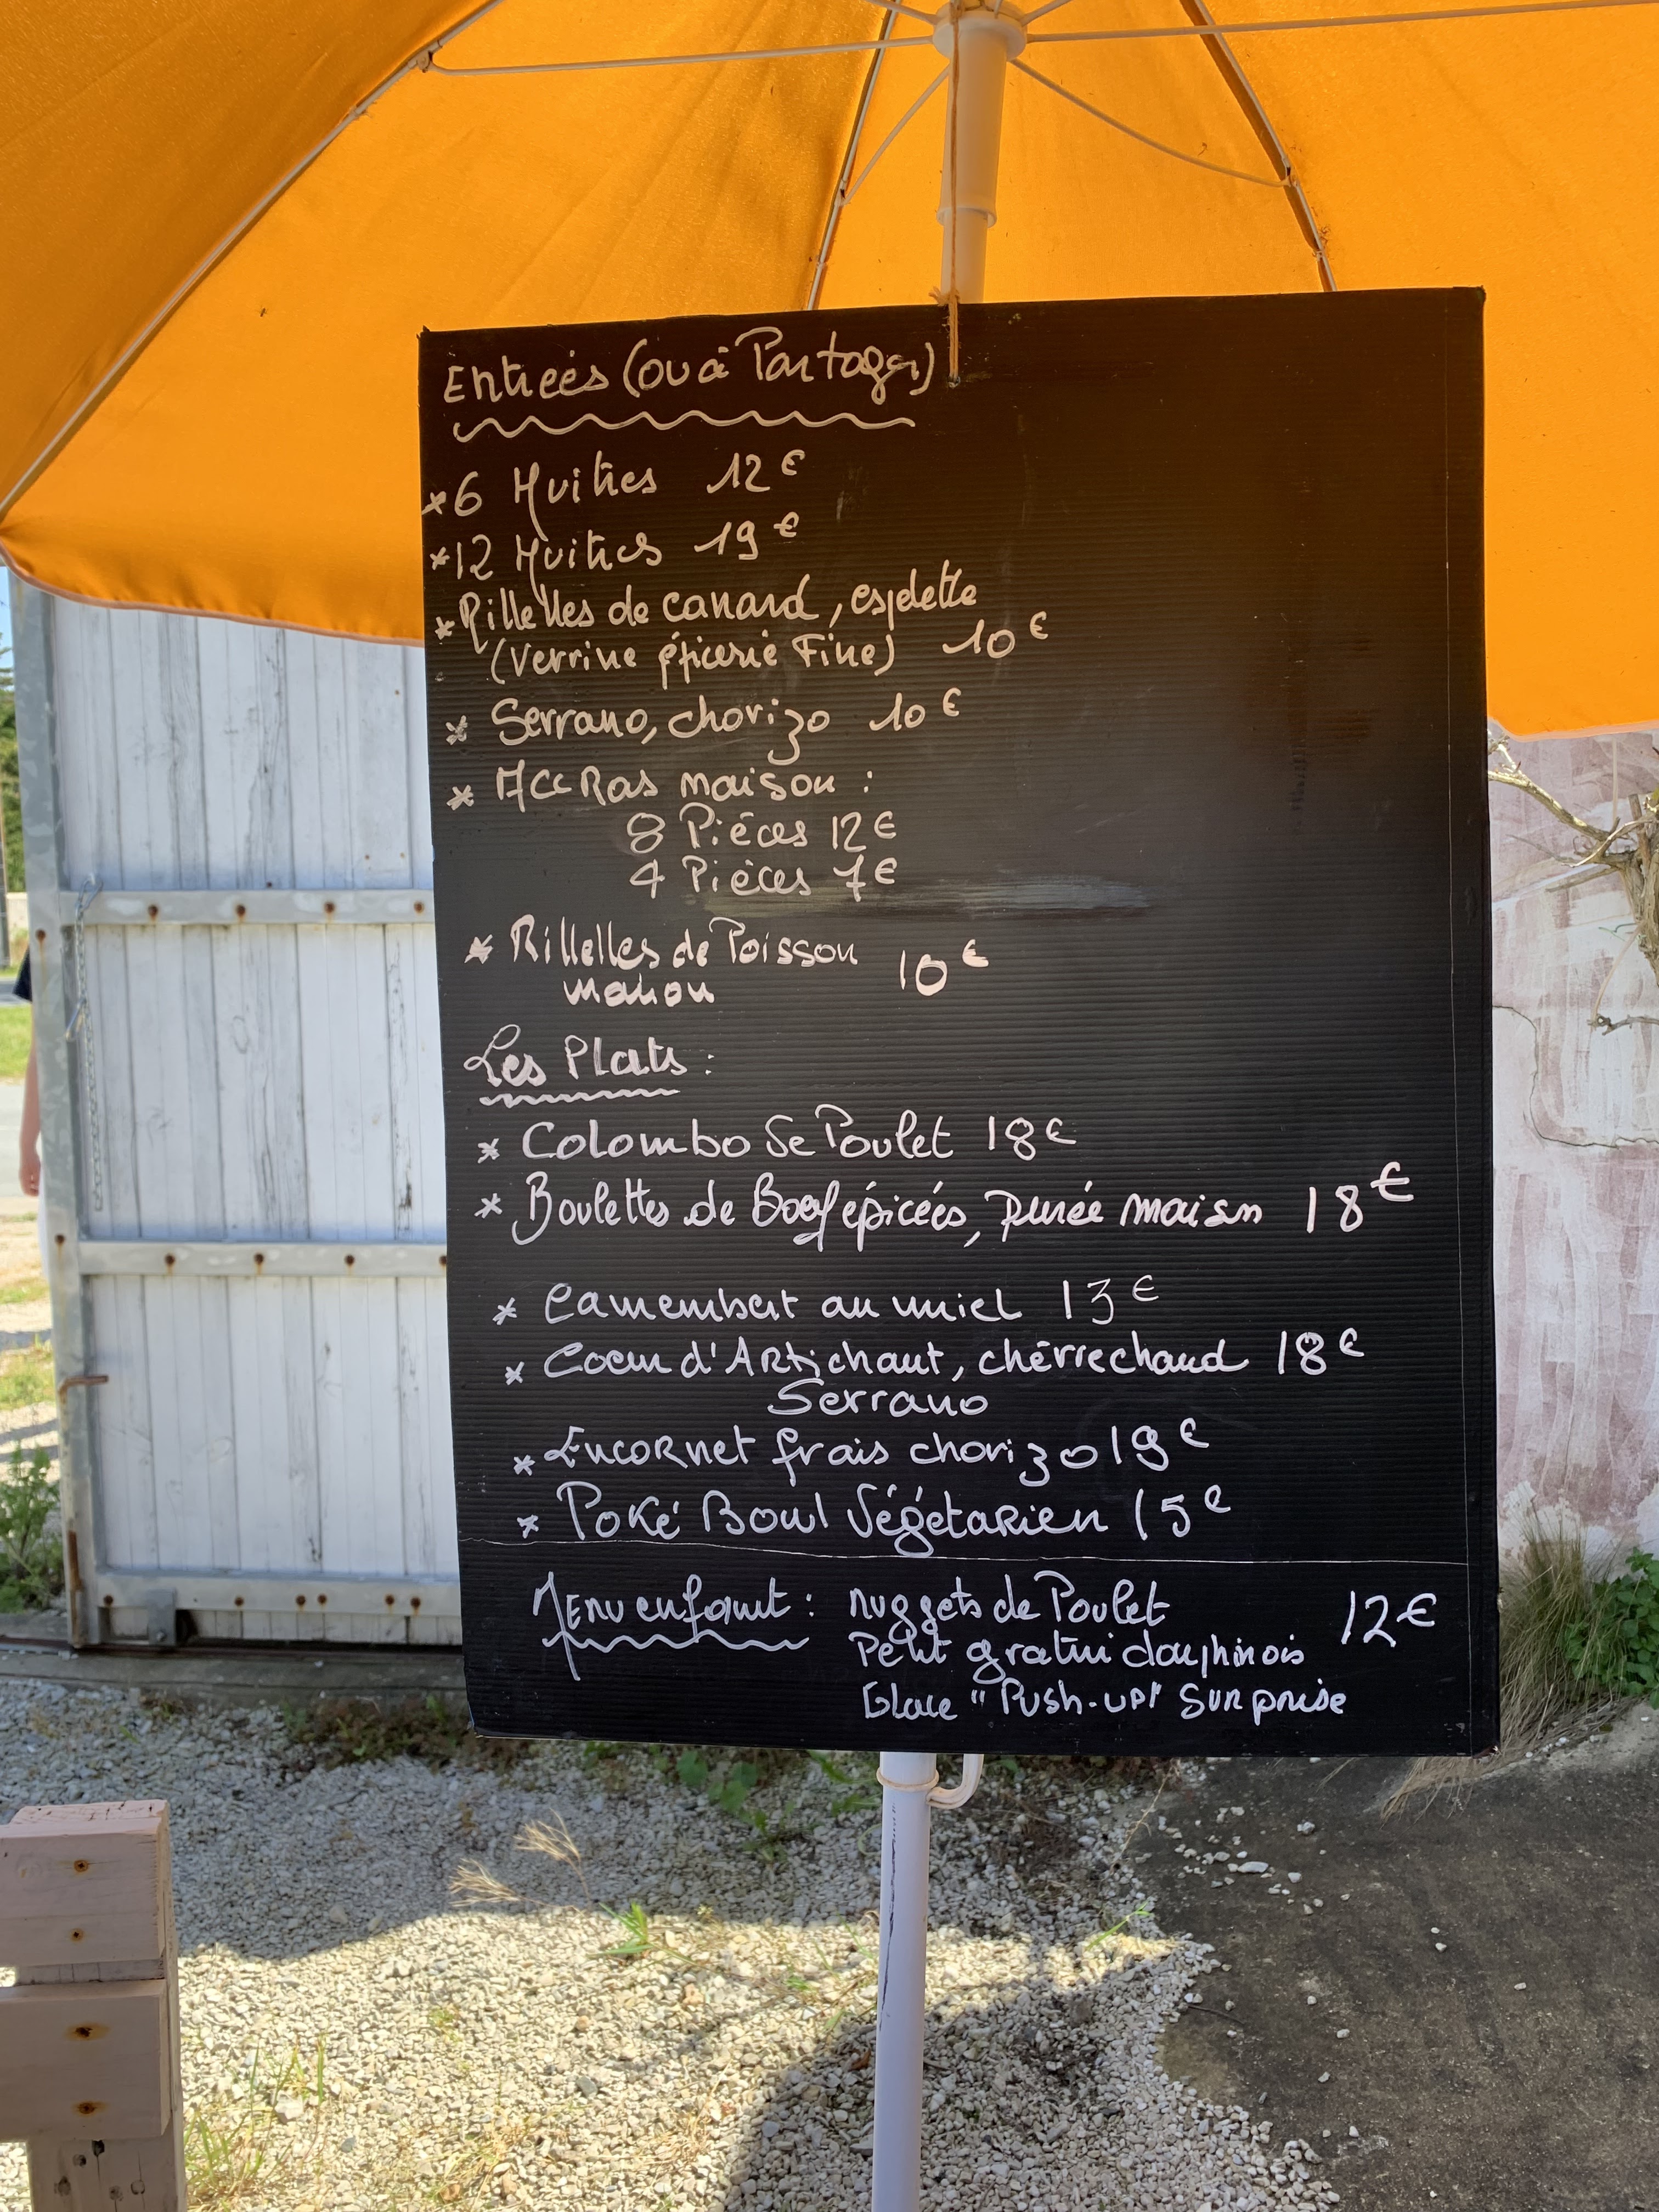 Entrées (ou à Partager)
* 6 Huitres 12€
* 12 Huitres 19€
* Rillettes de canard, espelette
(Verrine épicerie Fine) 10€
* Serrano, chorizo 10€
* Accras maison :
8 Pièces 12€
4 Pièces 7€
* Rillettes de Poisson 10€
maison
Les Plats :
* Colombo de Poulet 18€
* Boulettes de Boeuf épicées, purée maison 18€
* Camembert au miel 13€
* Coeur d'Artichaut, chèvre chaud 18€
Serrano
* Encornet frais chorizo 19€
* Poké Bowl Végétarien 15€
Menu enfant : nuggets de Poulet 12€
Petit gratin dauphinois
Glace "Push-up" Surprise